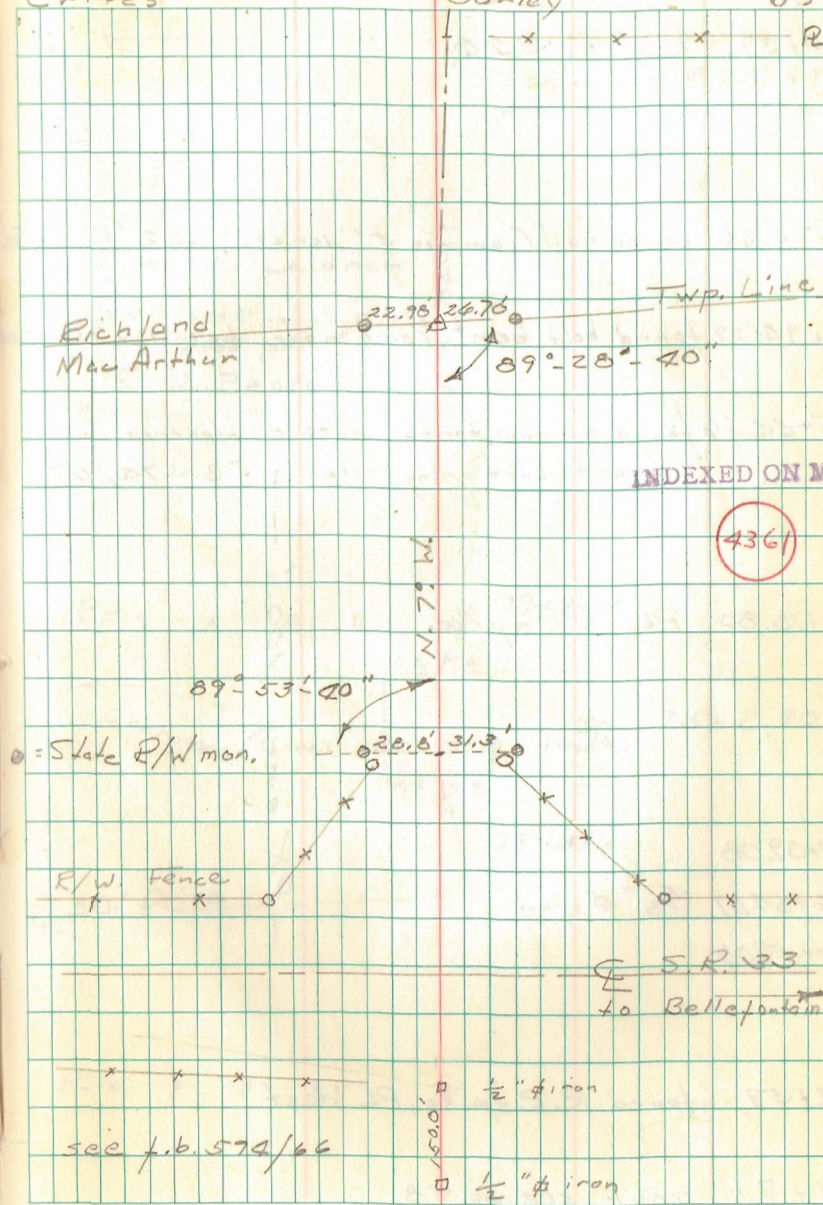 R
22.98' 26.76' Twp. Line
Richland
Mac Arthur
89°-28'-40"
INDEXED ON M
4361
N. 7° W.
89°-53'-40"
= State R/W mon. 28.8' 31.3'
R/W. Fence
℄ S.R. 33
to Bellefontain
1/2" ϕ iron
150.0'
see f.b. 594/66
1/2" ϕ iron